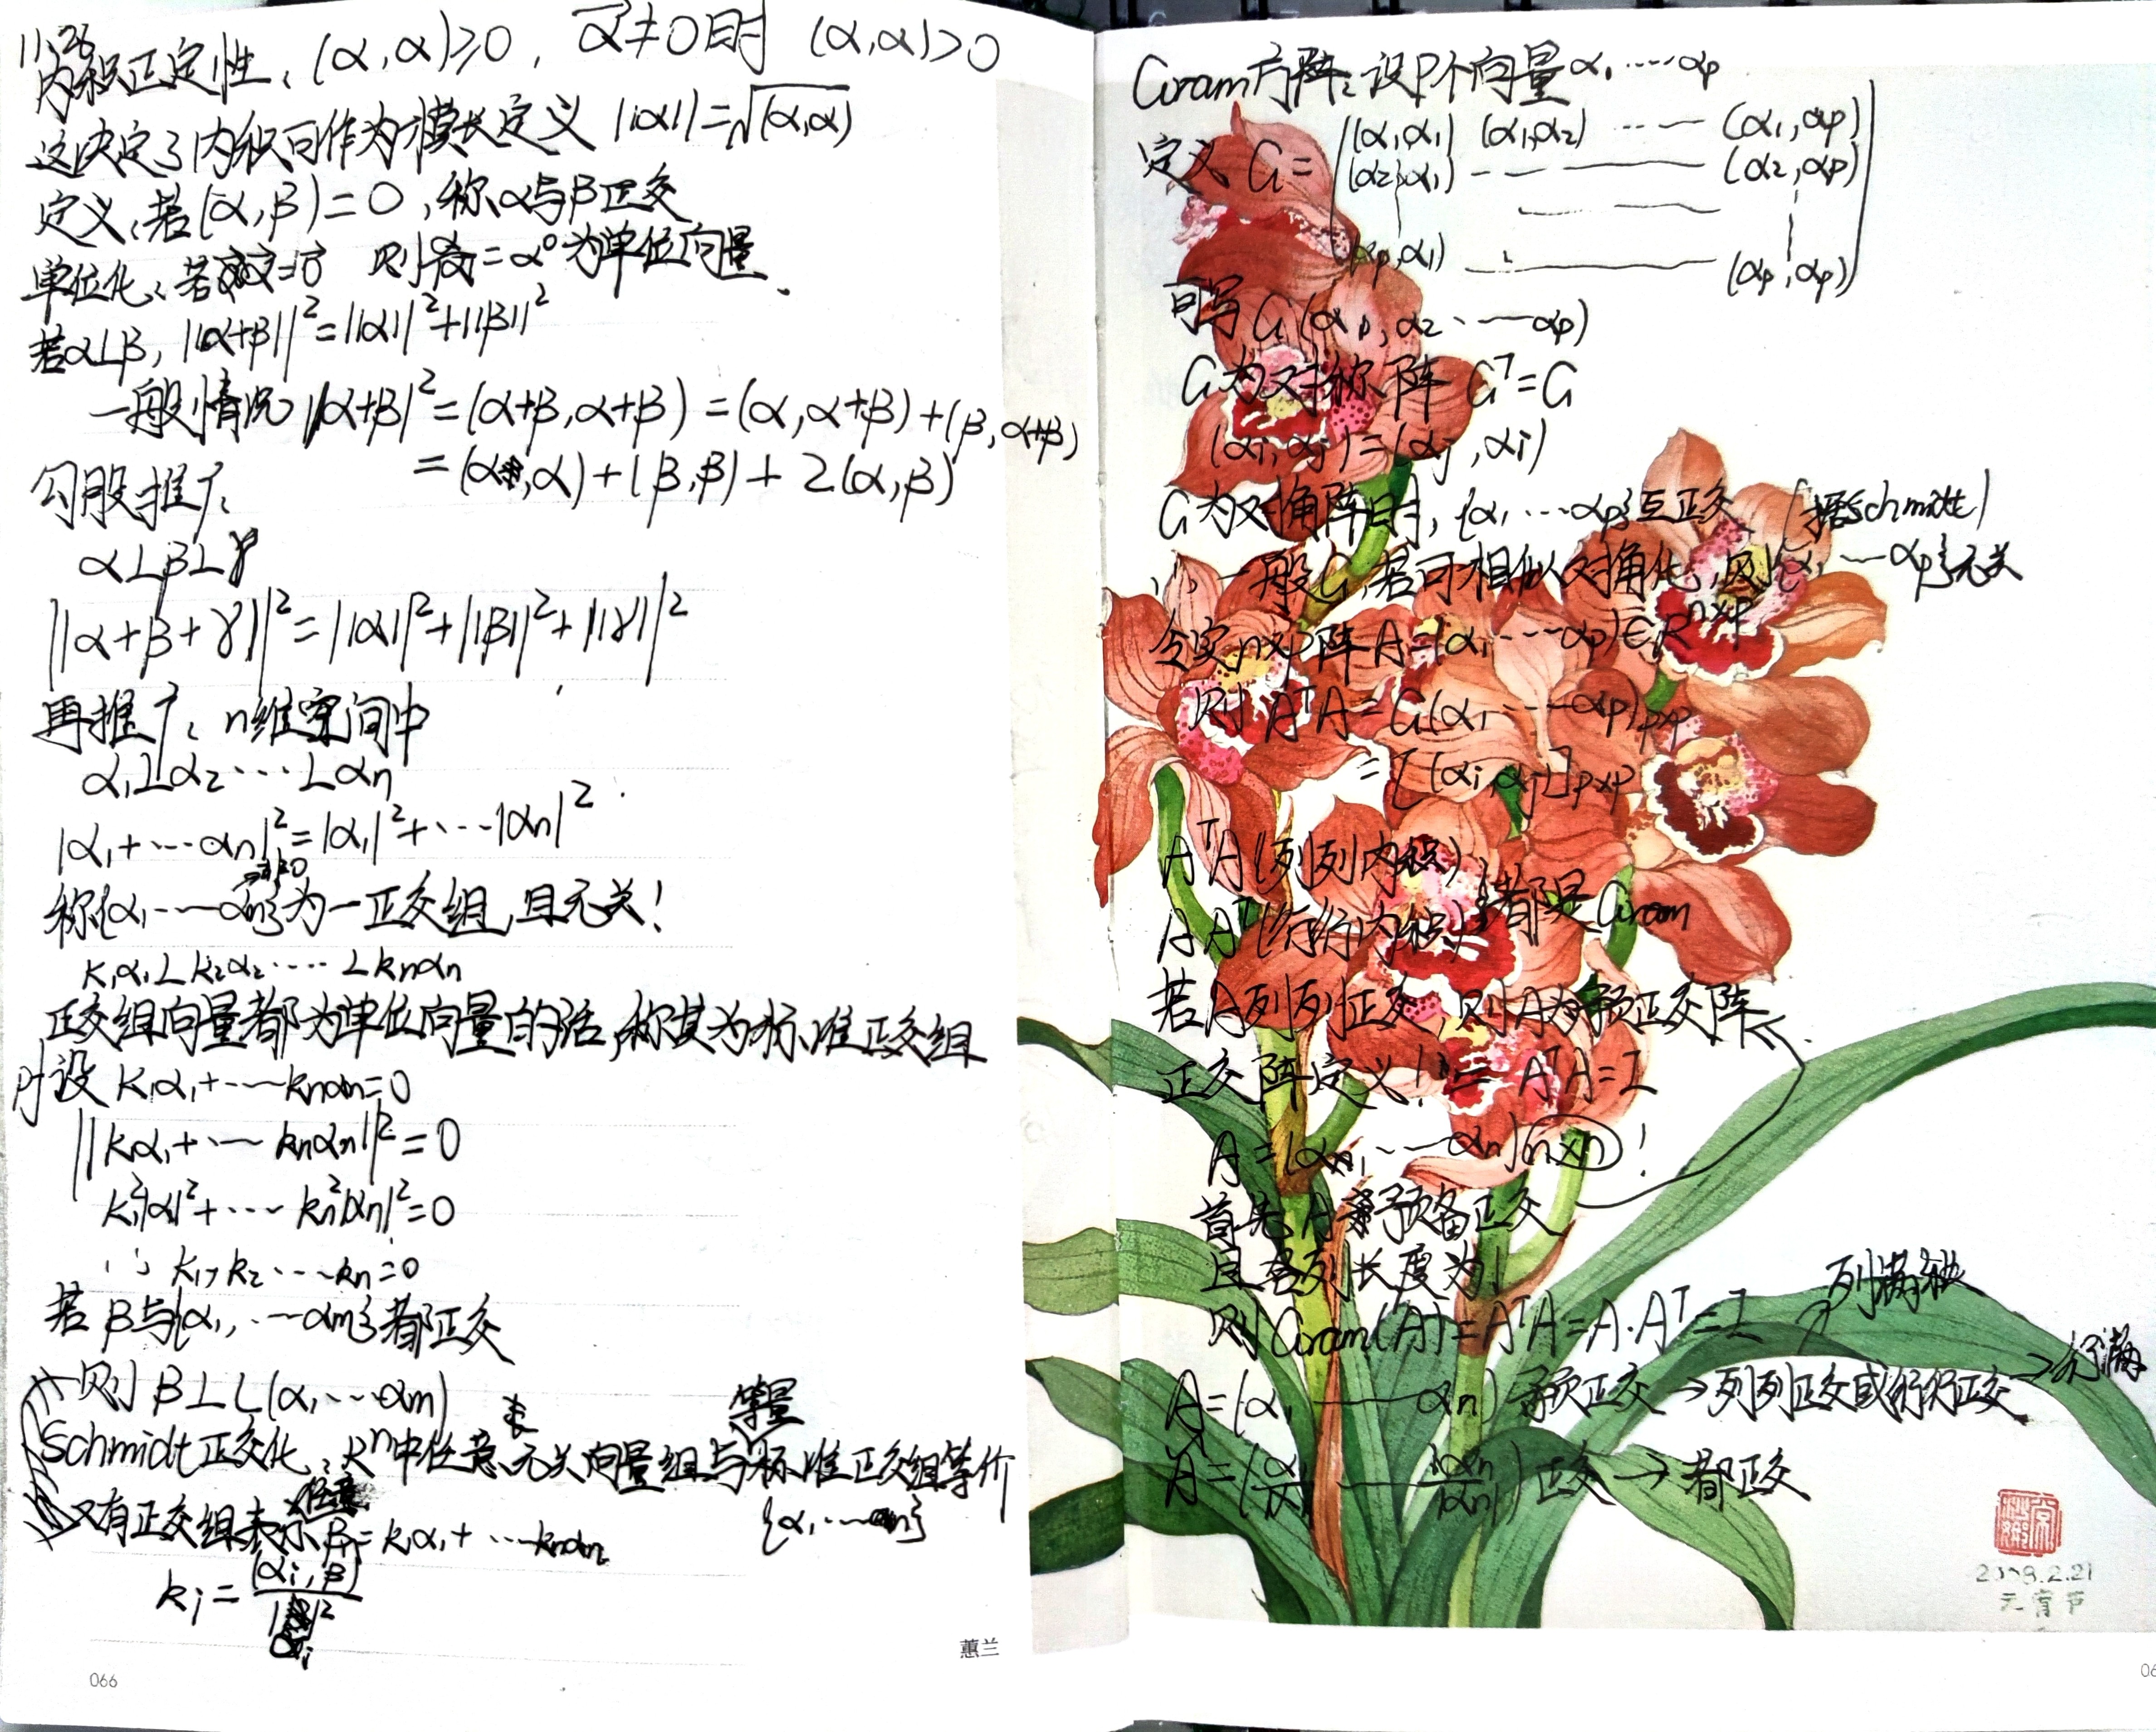 11.26
内积正定性: (α,α)≥0, α≠0时 (α,α)>0
这决定了内积可作为模长定义 ||α||=√(α,α)
定义:若(α,β)=0,称α与β正交
单位化:若 则 =α⁰为单位向量.
若α⊥β, ||α+β||²=||α||²+||β||²
一般情况 |α+β|²=(α+β,α+β)=(α,α+β)+(β,α+β)
=(α,α)+(β,β)+2(α,β)
勾股推广:
α⊥β⊥γ
||α+β+γ||²=||α||²+||β||²+||γ||²
再推广: n维空间中
α₁⊥α₂…⊥αn
|α₁+…αn|²=|α₁|²+…|αn|²
称{α₁…αn}为一正交组,且无关!
k₁α₁⊥k₂α₂…⊥knαn
正交组向量都为单位向量的话,称其为标准正交组
pf设 k₁α₁+…knαn=0
||k₁α₁+…knαn||²=0
k₁²|α₁|²+…kn²|αn|²=0
∴ k₁,k₂…kn=0
若β与{α₁,…αm}都正交
则β⊥L(α₁…αm)
Schmidt正交化: Rⁿ中任意无关向量组与等量标准正交组等价
{α₁…αn}
又有正交组表示任意β=k₁α₁+…knαn
ki=(αi,β)/|αi|²
蕙兰
066
Gram方阵:设P个向量α₁…αp
定义 G= (α₁,α₁) (α₁,α₂) … (α₁,αp)
(α₂,α₁) … (α₂,αp)
(αp,α₁) … (αp,αp)
可写G(α₁,α₂…αp)
G为对称阵 Gᵀ=G
(αi,αj)=(αj,αi)
G为对角阵时,{α₁…αp}互正交 (据Schmidt)
∴一般G,若可相似对角化,则{α₁…αp}无关
令实n×p阵A=(α₁…αp)∈Rⁿˣᵖ
则AᵀA=G(α₁…αp)p×p
=[(αi,αj)]p×p
AᵀA(列列内积)
AAᵀ(行行内积) }都是Gram
若A列列正交,则A为预正交阵
正交阵定义: AᵀA=I
A=(α₁…αn)(n×n)!
首先A预备正交
且各列长度为1
则Gram(A)=AᵀA=A·Aᵀ=I
列满秩
A=(α₁…αn) 预正交→列列正交或行行正交→行满
A=(α₁/|α₁| … αn/|αn|) 正交→都正交
2008.2.21
元宵节